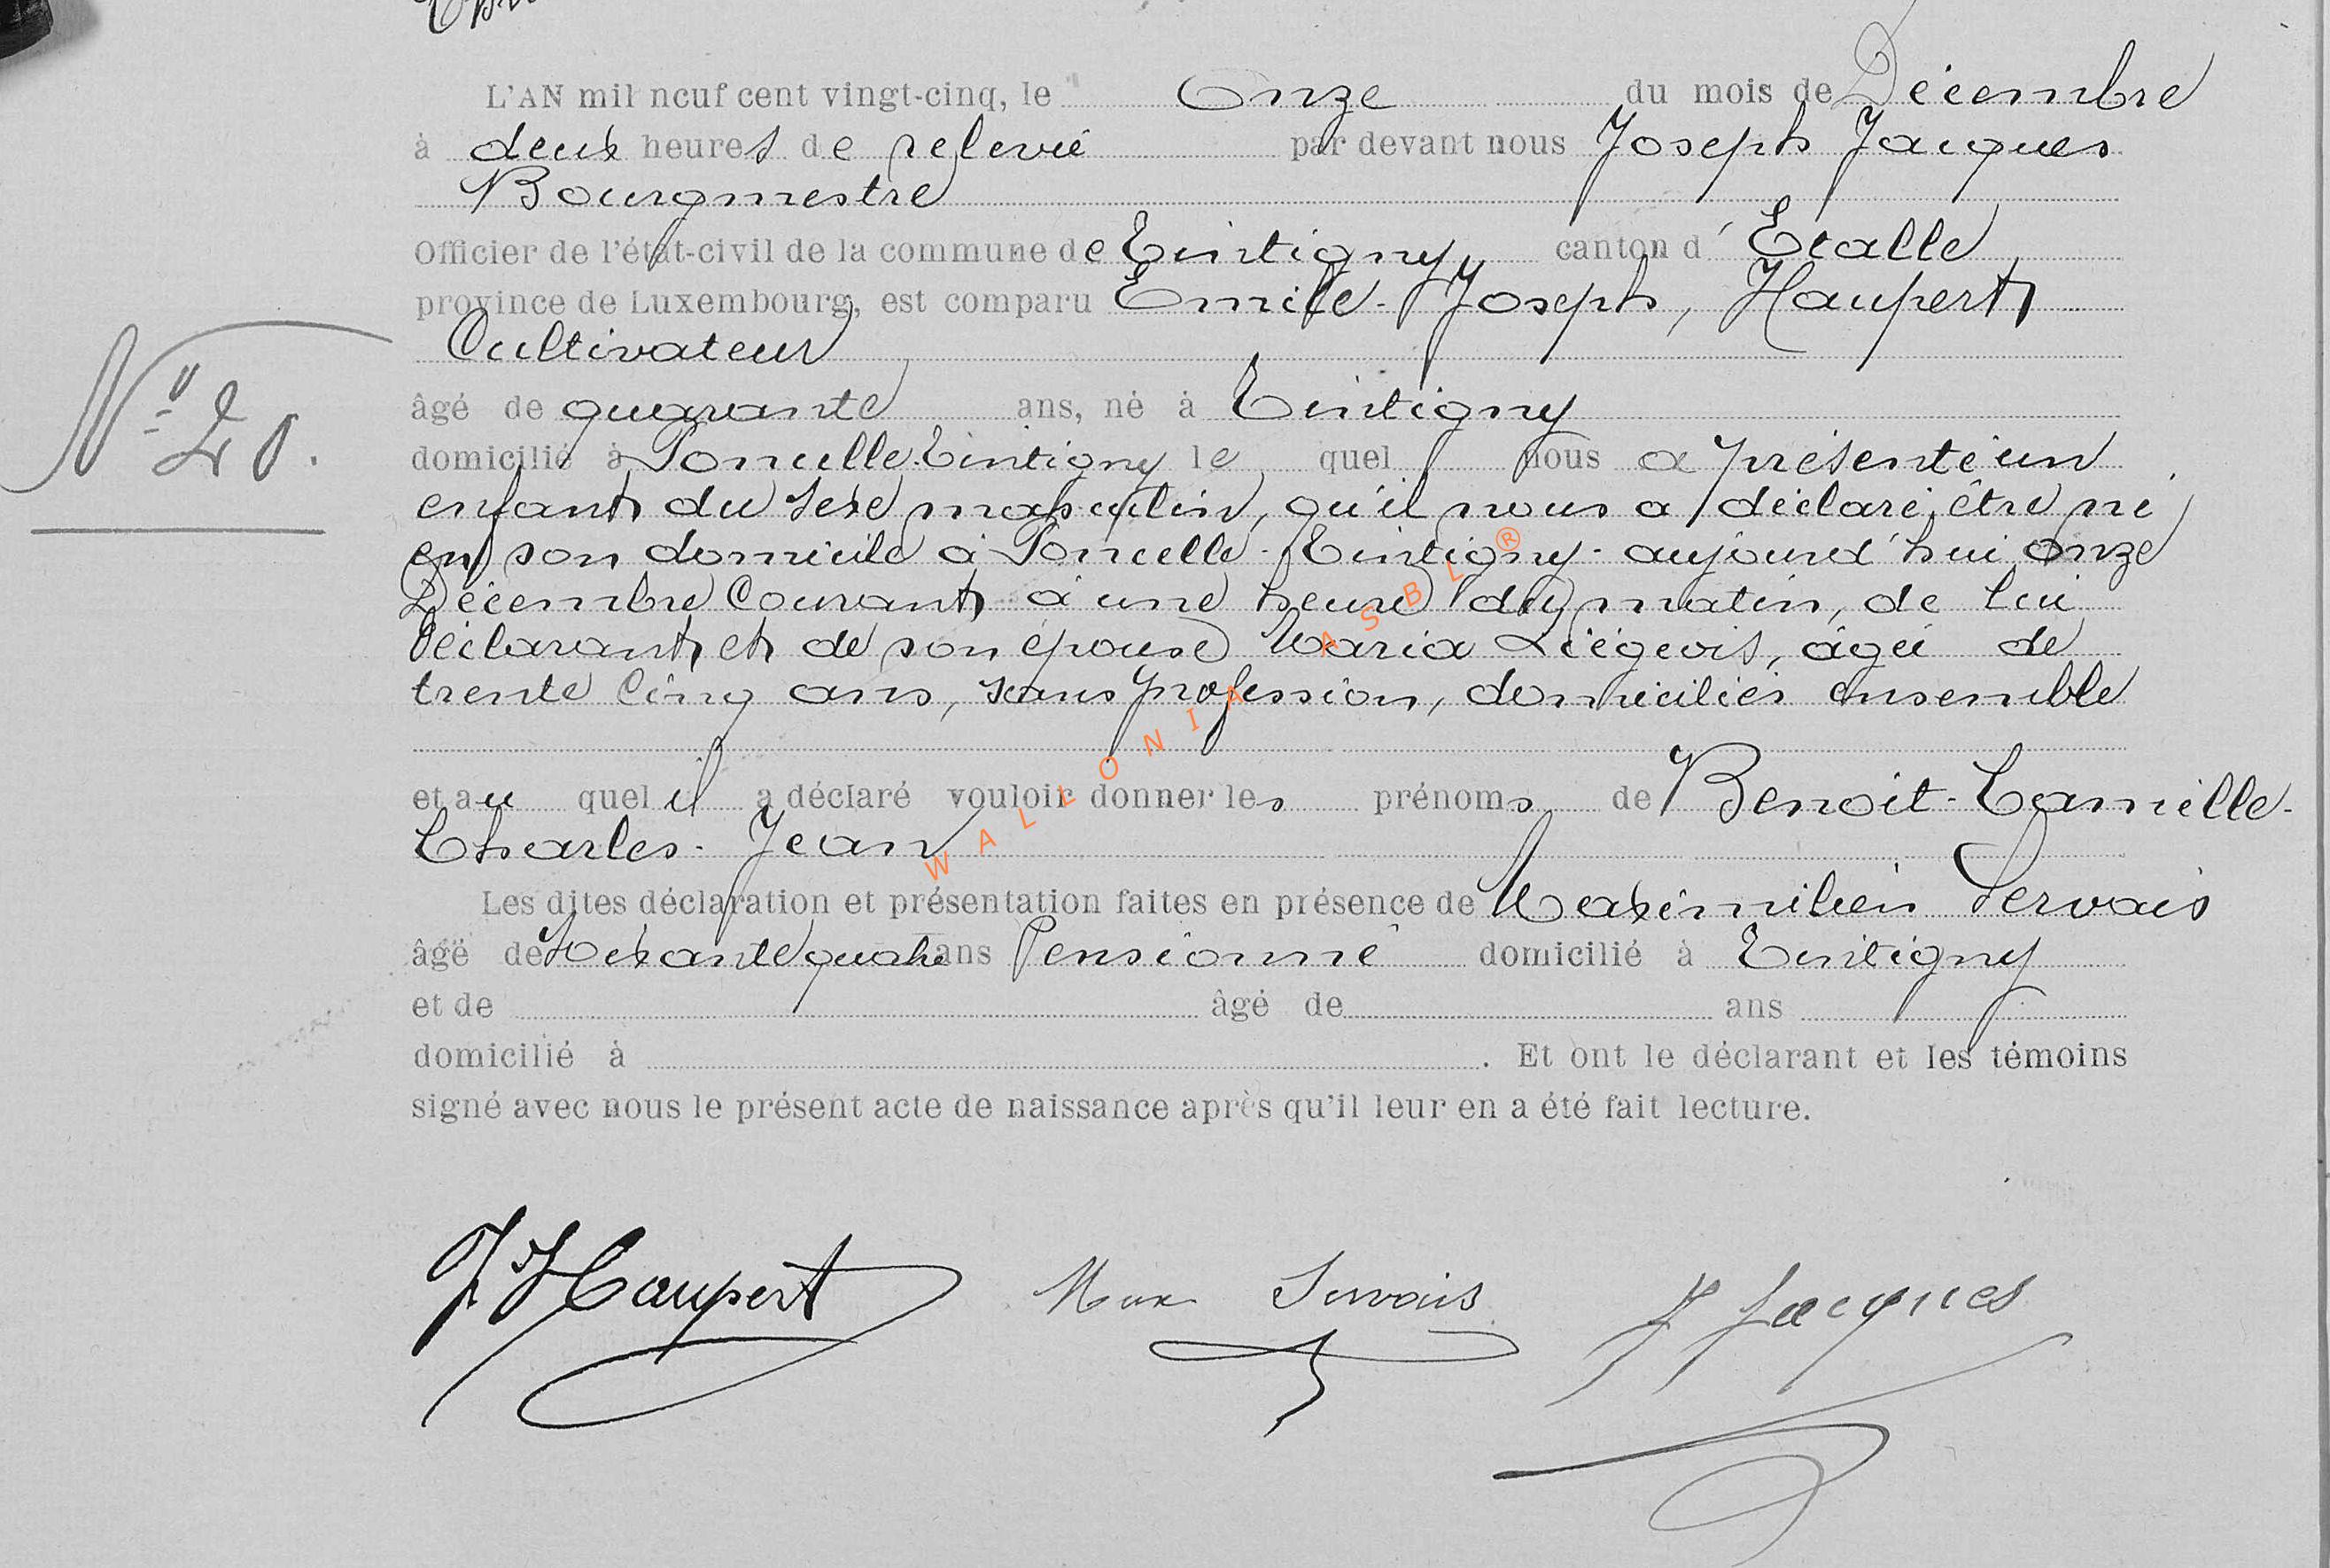 L'AN mil neuf cent vingt-cinq, le Onze du mois de Décembre
à deux heures de relevée par devant nous Joseph Jacques
Bourgmestre
Officier de l'état-civil de la commune de Tintigny canton d'Etalle
province de Luxembourg, est comparu Emile-Joseph, Haupert
Cultivateur
âgé de quarante ans, né à Tintigny
N° 20.
domicilié à Poncelle-Tintigny le quel nous a présenté un
enfant du sexe masculin, qu'il nous a déclaré être né
en son domicile à Poncelle-Tintigny - aujourd'hui onze
Décembre Courant à une heure du matin, de lui
déclarant et de son épouse Maria Liégeois, âgée de
trente cinq ans, sans profession, domiciliés ensemble
et au quel il a déclaré vouloir donner les prénoms de Benoit-Camille-
Charles-Jean
Les dites déclaration et présentation faites en présence de Maximilien Servais
âgé de soixante quatre ans Pensionné domicilié à Tintigny
et de âgé de ans
domicilié à . Et ont le déclarant et les témoins
signé avec nous le présent acte de naissance après qu'il leur en a été fait lecture.
Haupert Max Servais J Jacques
WALLONIA ASBL ®